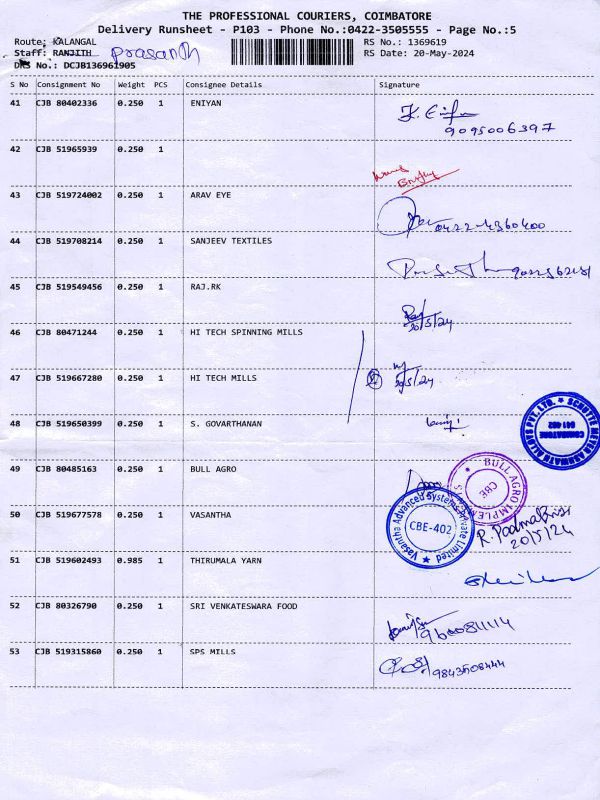 THE PROFESSIONAL COURIERS, COIMBATORE
Delivery Runsheet - P103 - Phone No.:0422-3505555 - Page No.:5
Route: KALANGAL
RS No.: 1369619
Staff: RANJITH Prasanth
RS Date: 20-May-2024
DRS No.: DCJB136961905
S No Consignment No Weight PCS Consignee Details Signature
41 CJB 80402336 0.250 1 ENIYAN
9095006397
42 CJB 51965939 0.250 1
43 CJB 519724002 0.250 1 ARAV EYE
0422-4360400
44 CJB 519708214 0.250 1 SANJEEV TEXTILES
45 CJB 519549456 0.250 1 RAJ.RK
20/5/24
46 CJB 80471244 0.250 1 HI TECH SPINNING MILLS
47 CJB 519667280 0.250 1 HI TECH MILLS
20/5/24
48 CJB 519650399 0.250 1 S. GOVARTHANAN
COIMBATORE 641 402
49 CJB 80485163 0.250 1 BULL AGRO
BULL AGRO IMPLEMENTS
CBE
50 CJB 519677578 0.250 1 VASANTHA
Vasantha Advanced Systems Private Limited
CBE-402
20/5/24
51 CJB 519602493 0.985 1 THIRUMALA YARN
52 CJB 80326790 0.250 1 SRI VENKATESWARA FOOD
9600811114
53 CJB 519315860 0.250 1 SPS MILLS
9843508444